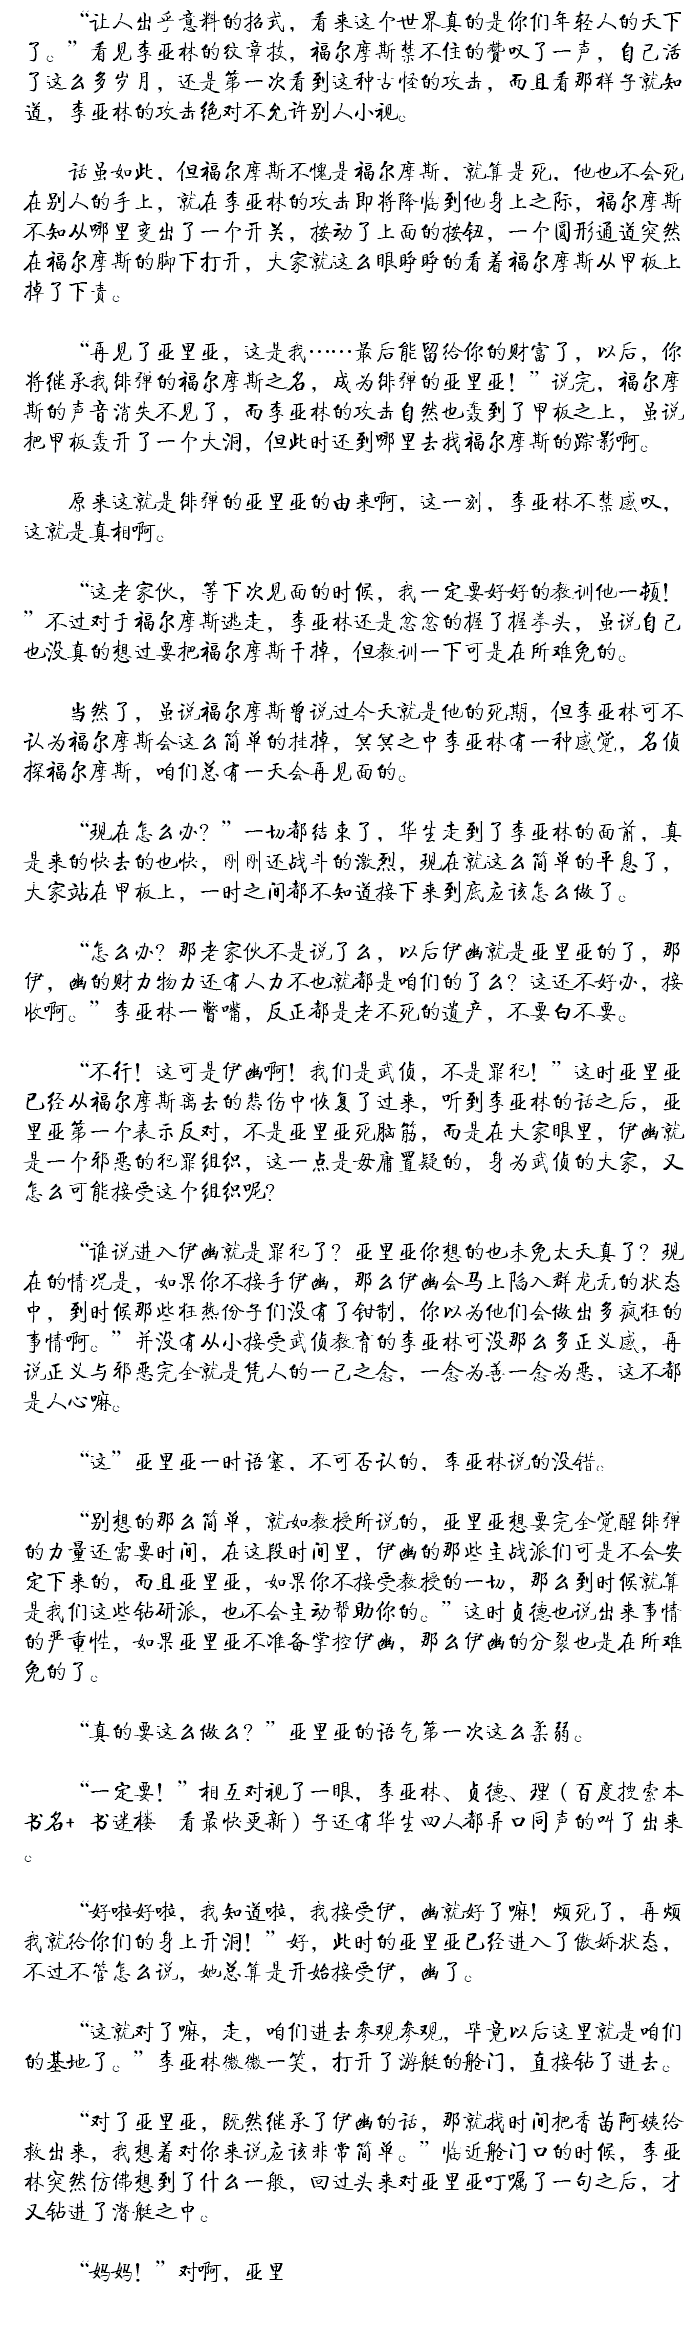 “让人出乎意料的招式，看来这个世界真的是你们年轻人的天下
了。”看见李亚林的纹章技，福尔摩斯禁不住的赞叹了一声，自己活
了这么多岁月，还是第一次看到这种古怪的攻击，而且看那样子就知
道，李亚林的攻击绝对不允许别人小视。
话虽如此，但福尔摩斯不愧是福尔摩斯，就算是死，他也不会死
在别人的手上，就在李亚林的攻击即将降临到他身上之际，福尔摩斯
不知从哪里变出了一个开关，按动了上面的按钮，一个圆形通道突然
在福尔摩斯的脚下打开，大家就这么眼睁睁的看着福尔摩斯从甲板上
掉了下责。
“再见了亚里亚，这是我……最后能留给你的财富了，以后，你
将继承我绯弹的福尔摩斯之名，成为绯弹的亚里亚！”说完，福尔摩
斯的声音消失不见了，而李亚林的攻击自然也轰到了甲板之上，虽说
把甲板轰开了一个大洞，但此时还到哪里去找福尔摩斯的踪影啊。
原来这就是绯弹的亚里亚的由来啊，这一刻，李亚林不禁感叹，
这就是真相啊。
“这老家伙，等下次见面的时候，我一定要好好的教训他一顿！
”不过对于福尔摩斯逃走，李亚林还是忿忿的握了握拳头，虽说自己
也没真的想过要把福尔摩斯干掉，但教训一下可是在所难免的。
当然了，虽说福尔摩斯曾说过今天就是他的死期，但李亚林可不
认为福尔摩斯会这么简单的挂掉，冥冥之中李亚林有一种感觉，名侦
探福尔摩斯，咱们总有一天会再见面的。
“现在怎么办？”一切都结束了，华生走到了李亚林的面前，真
是来的快去的也快，刚刚还战斗的激烈，现在就这么简单的平息了，
大家站在甲板上，一时之间都不知道接下来到底应该怎么做了。
“怎么办？那老家伙不是说了么，以后伊幽就是亚里亚的了，那
伊，幽的财力物力还有人力不也就都是咱们的了么？这还不好办，接
收啊。”李亚林一瞥嘴，反正都是老不死的遗产，不要白不要。
“不行！这可是伊幽啊！我们是武侦，不是罪犯！”这时亚里亚
已经从福尔摩斯离去的悲伤中恢复了过来，听到李亚林的话之后，亚
里亚第一个表示反对，不是亚里亚死脑筋，而是在大家眼里，伊幽就
是一个邪恶的犯罪组织，这一点是毋庸置疑的，身为武侦的大家，又
怎么可能接受这个组织呢？
“谁说进入伊幽就是罪犯了？亚里亚你想的也未免太天真了？现
在的情况是，如果你不接手伊幽，那么伊幽会马上陷入群龙无的状态
中，到时候那些狂热份子们没有了钳制，你以为他们会做出多疯狂的
事情啊。”并没有从小接受武侦教育的李亚林可没那么多正义感，再
说正义与邪恶完全就是凭人的一己之念，一念为善一念为恶，这不都
是人心嘛。
“这”亚里亚一时语塞，不可否认的，李亚林说的没错。
“别想的那么简单，就如教授所说的，亚里亚想要完全觉醒绯弹
的力量还需要时间，在这段时间里，伊幽的那些主战派们可是不会安
定下来的，而且亚里亚，如果你不接受教授的一切，那么到时候就算
是我们这些钻研派，也不会主动帮助你的。”这时贞德也说出来事情
的严重性，如果亚里亚不准备掌控伊幽，那么伊幽的分裂也是在所难
免的了。
“真的要这么做么？”亚里亚的语气第一次这么柔弱。
“一定要！”相互对视了一眼，李亚林、贞德、理（百度搜索本
书名+ 书迷楼 看最快更新）子还有华生四人都异口同声的叫了出来
。
“好啦好啦，我知道啦，我接受伊，幽就好了嘛！烦死了，再烦
我就给你们的身上开洞！”好，此时的亚里亚已经进入了傲娇状态，
不过不管怎么说，她总算是开始接受伊，幽了。
“这就对了嘛，走，咱们进去参观参观，毕竟以后这里就是咱们
的基地了。”李亚林微微一笑，打开了游艇的舱门，直接钻了进去。
“对了亚里亚，既然继承了伊幽的话，那就找时间把香苗阿姨给
救出来，我想着对你来说应该非常简单。”临近舱门口的时候，李亚
林突然仿佛想到了什么一般，回过头来对亚里亚叮嘱了一句之后，才
又钻进了潜艇之中。
“妈妈！”对啊，亚里